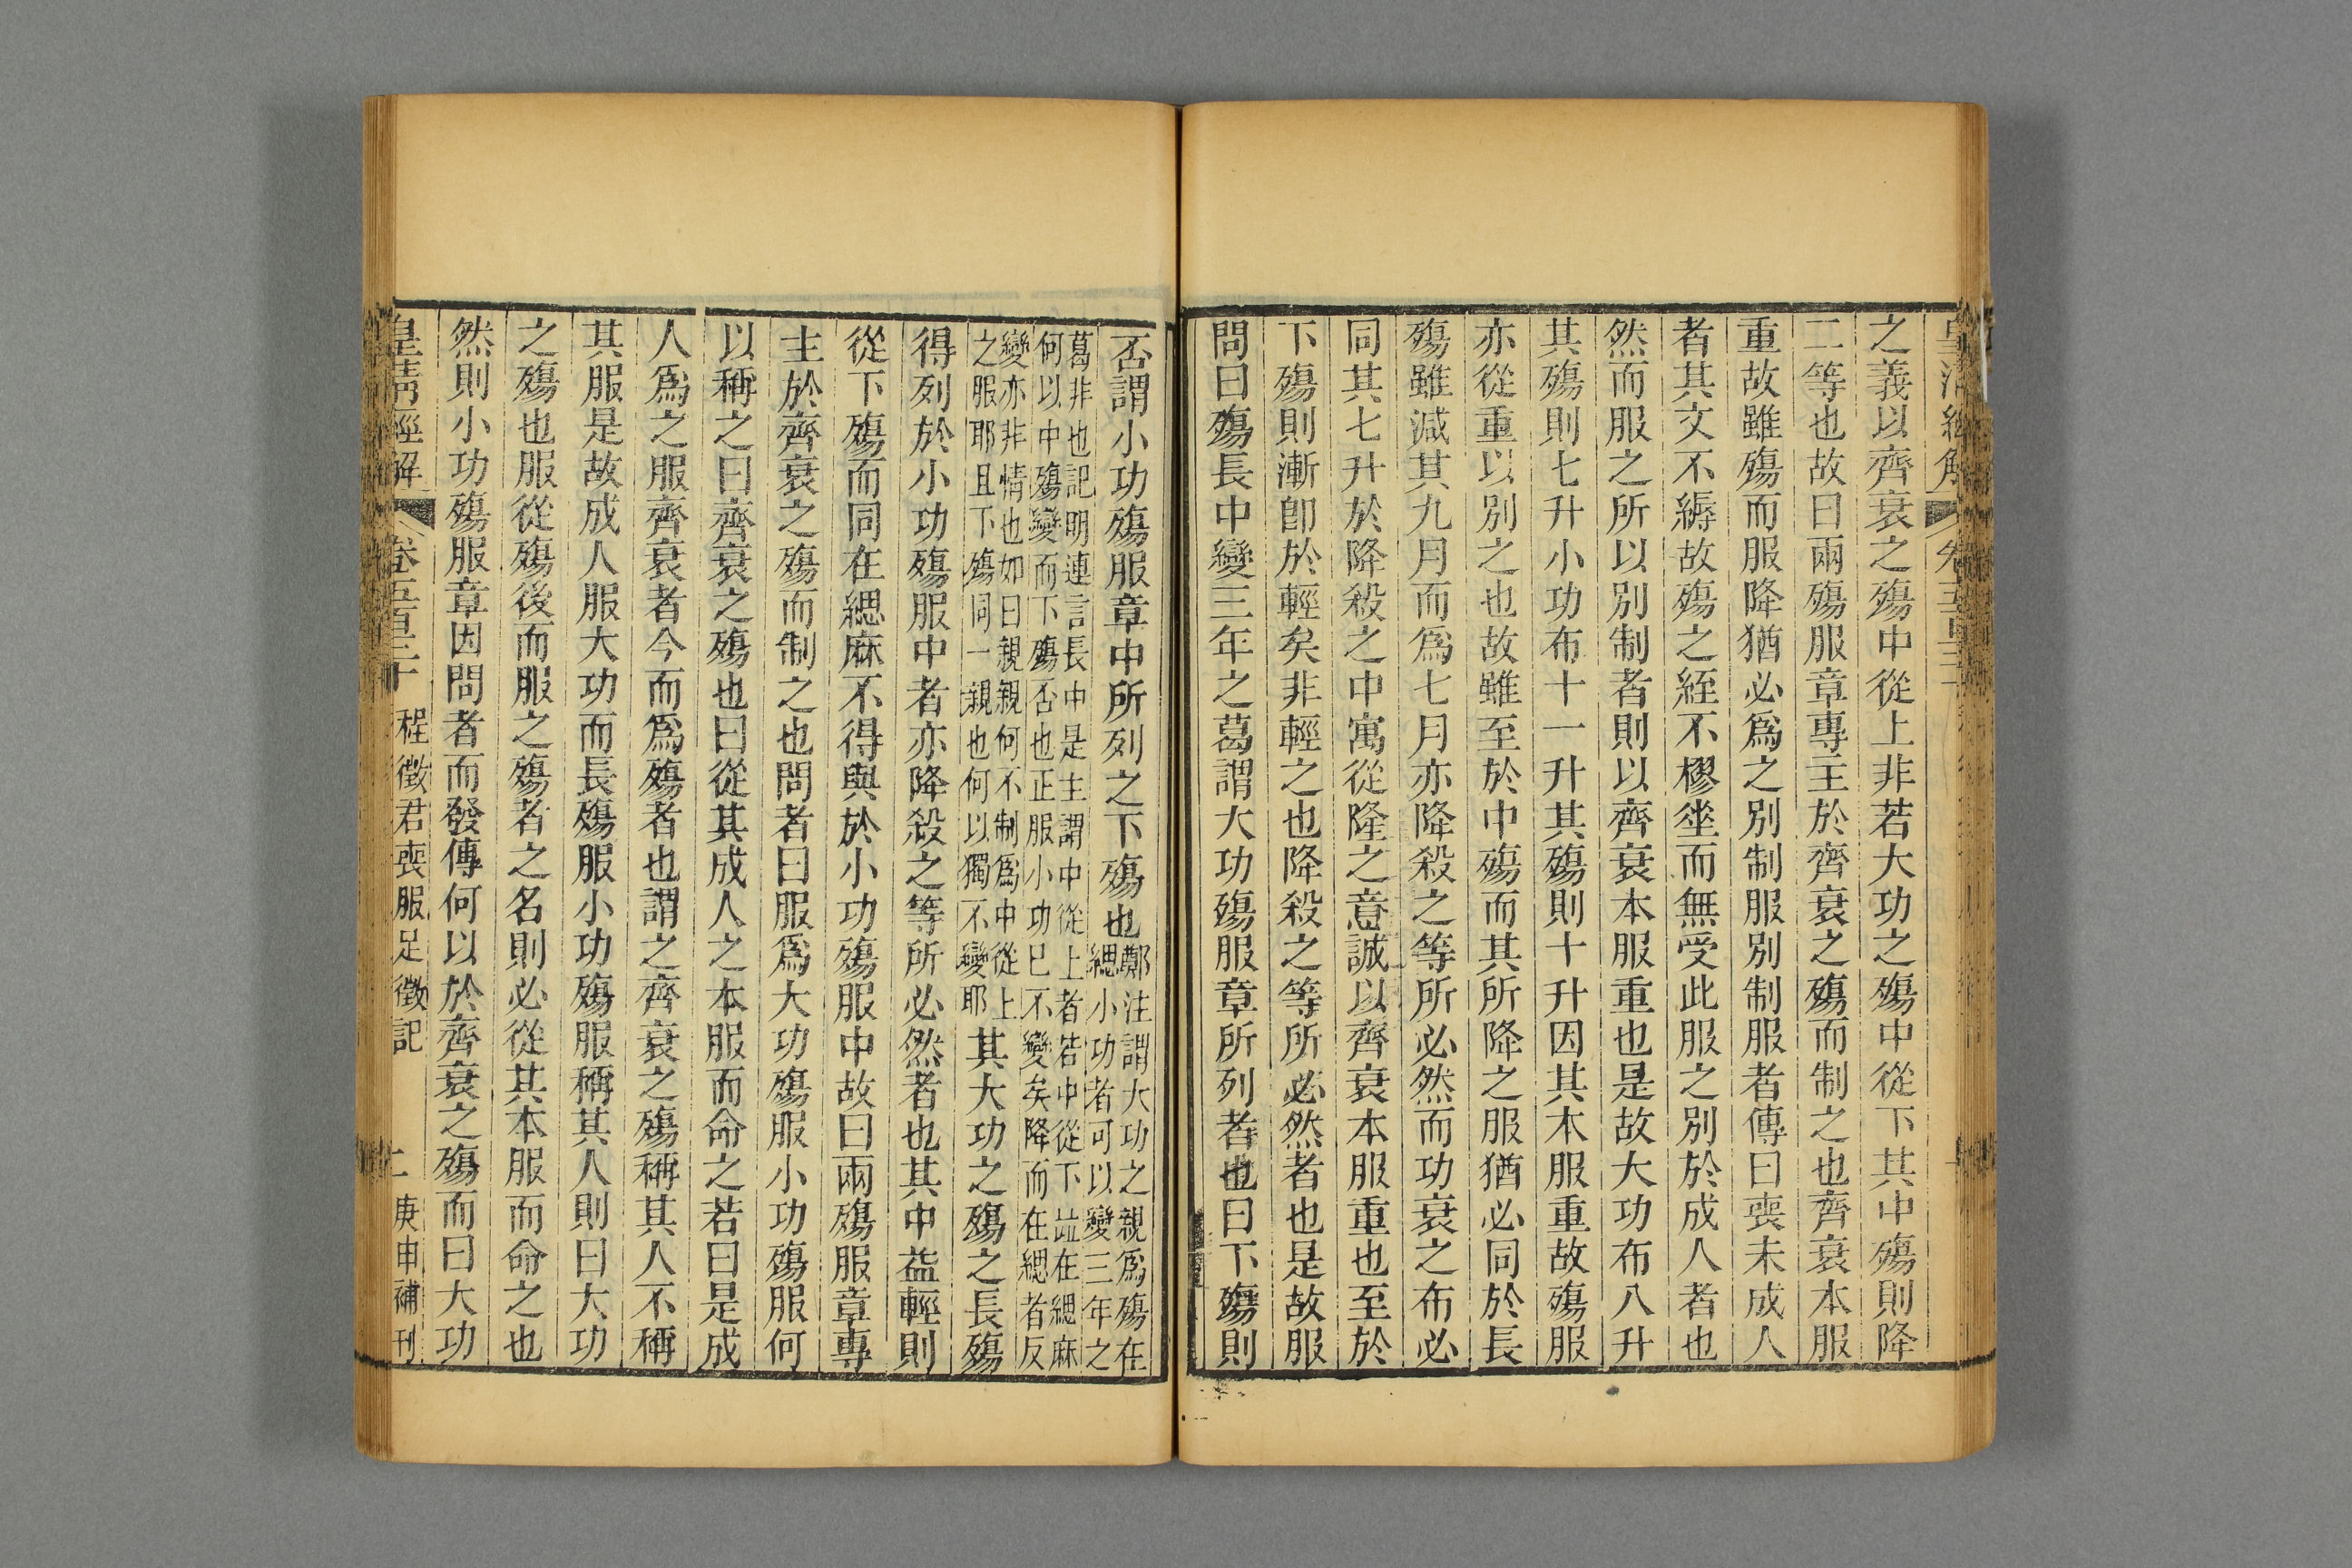 之義以齊衰之殤中從上非若大功之殤中從下其中殤則降
二等也故曰兩殤服章專主於齊衰之殤而制之也齊衰本服
重故雖殤而服降猶必爲之別制服別制服者傳曰喪未成人
者其文不縟故殤之絰不樛垂而無受此服之別於成人者也
然而服之所以別制者則以齊衰本服重也是故大功布八升
其殤則七升小功布十一升其殤則十升因其本服重故殤服
亦從重以別之也故雖至於中殤而其所降之服猶必同於長
殤雖減其九月而爲七月亦降殺之等所必然而功衰之布必
同其七升於降殺之中寓從隆之意誠以齊衰本服重也至於
下殤則漸卽於輕矣非輕之也降殺之等所必然者也是故服
問曰殤長中變三年之葛謂大功殤服章所列者也曰下殤則
否謂小功殤服章中所列之下殤也鄭注謂大功之親爲殤在
緦小功者可以變三年之
葛非也記明連言長中是主謂中從上者若中從下竝在緦麻
何以中殤變而下殤否也正服小功已不變矣降而在緦者反
變亦非情也如曰親親何不制爲中從上
之服耶且下殤同一親也何以獨不變耶其大功之殤之長殤
得列於小功殤服中者亦降殺之等所必然者也其中益輕則
從下殤而同在緦麻不得與於小功殤服中故曰兩殤服章專
主於齊衰之殤而制之也問者曰服爲大功殤服小功殤服何
以稱之曰齊衰之殤也曰從其成人之本服而命之若曰是成
人爲之服齊衰者今而爲殤者也謂之齊衰之殤稱其人不稱
其服是故成人服大功而長殤服小功殤服稱其人則曰大功
之殤也服從殤後而服之殤者之名則必從其本服而命之也
然則小功殤服章因問者而發傳何以於齊衰之殤而曰大功
皇淸經解 卷五百三十 程徵君喪服足徵記 二 庚申補刊